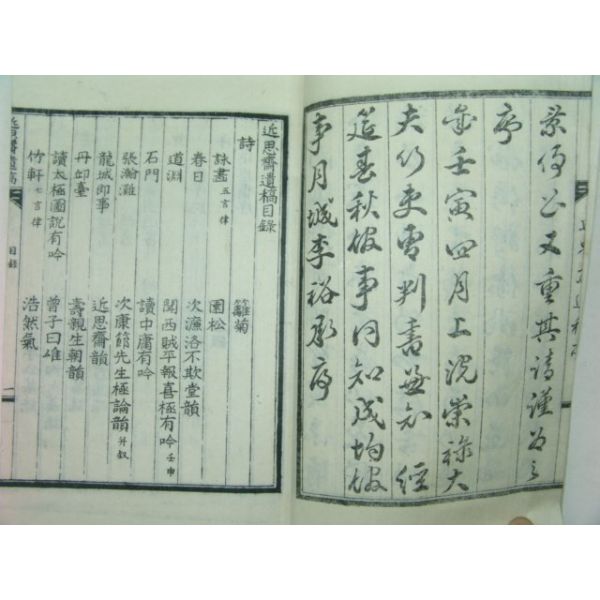 又重其請謹爲之
序
壬寅四月上浣崇祿大
夫行吏曹判書兼知 經
筵春秋館事同知成均館
事月城李裕承序
近思齋遺稿目錄
詩 籬菊
詠畫 五言律 園松
春日 次濂洛不欺堂韻
道淵 聞西賊平報喜極有吟 壬申
石門 讀中庸有吟
張瀚灘 次康節先生極論韻 幷叙
龍城卽事 近思齋韻
丹邱臺 壽親生朝韻
讀太極圖說有吟 曾子曰唯
竹軒 七言律 浩然氣
近思齋遺稿 目錄 一